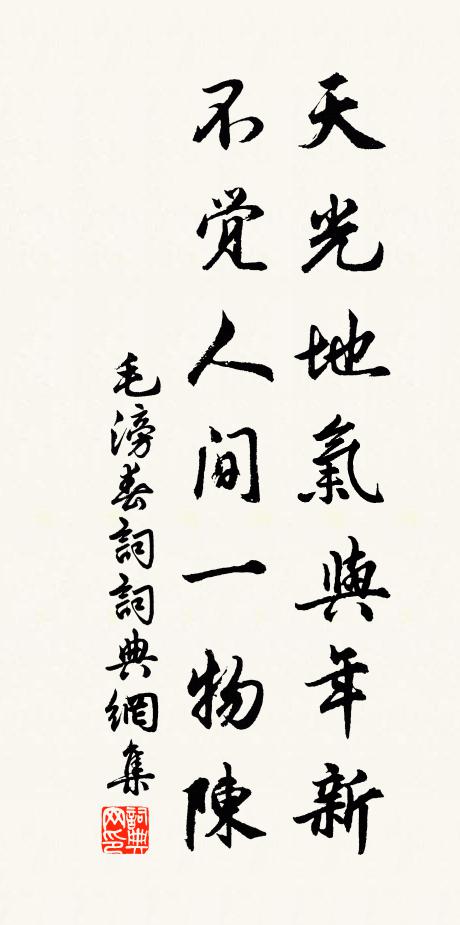 天光地氣與年新
不觉人间一物陳
毛滂春詞詞典網集
詞典网印